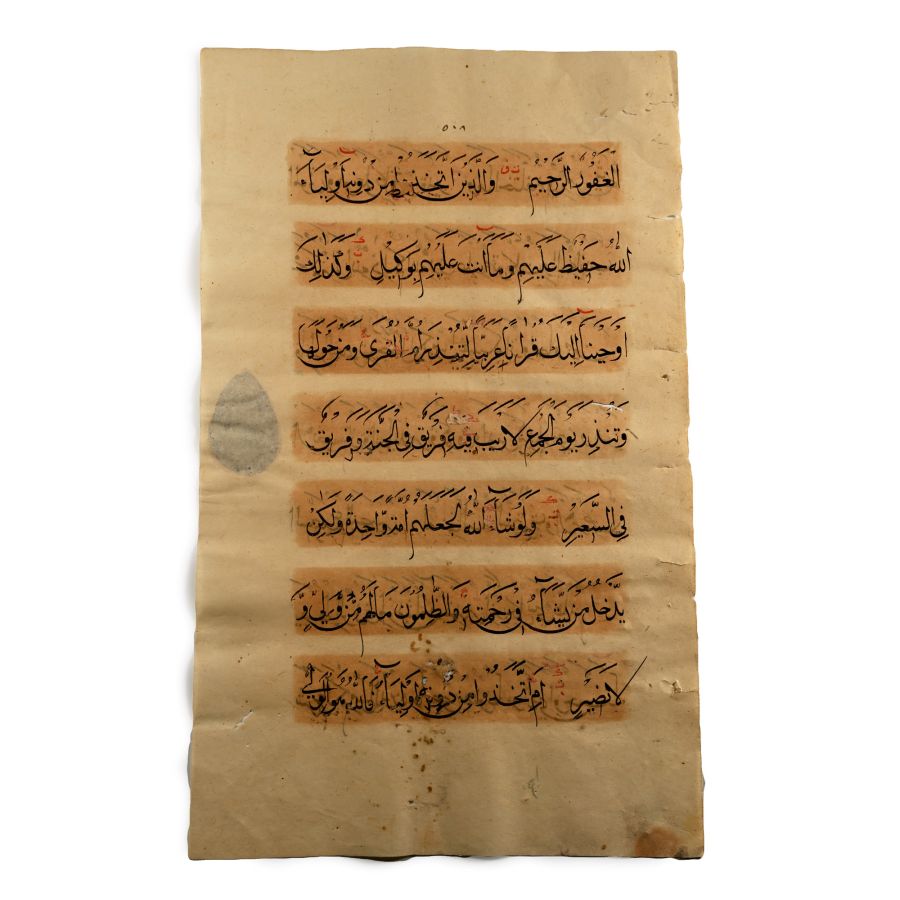 ٥٠٨
الغَفُورُ الرَّحِيمُ وَالَّذِينَ اتَّخَذُوا مِن دُونِهِ أَوْلِيَاءَ
اللَّهُ حَفِيظٌ عَلَيْهِمْ وَمَا أَنتَ عَلَيْهِم بِوَكِيلٍ وَكَذَٰلِكَ
أَوْحَيْنَا إِلَيْكَ قُرْآنًا عَرَبِيًّا لِّتُنذِرَ أُمَّ الْقُرَىٰ وَمَنْ حَوْلَهَا
وَتُنذِرَ يَوْمَ الْجَمْعِ لَا رَيْبَ فِيهِ فَرِيقٌ فِي الْجَنَّةِ وَفَرِيقٌ
فِي السَّعِيرِ وَلَوْ شَاءَ اللَّهُ لَجَعَلَهُمْ أُمَّةً وَاحِدَةً وَلَٰكِن
يُدْخِلُ مَن يَشَاءُ فِي رَحْمَتِهِ وَالظَّٰلِمُونَ مَا لَهُم مِّن وَلِيٍّ وَ
لَا نَصِيرٍ أَمِ اتَّخَذُوا مِن دُونِهِ أَوْلِيَاءَ فَاللَّهُ هُوَ الْوَلِيُّ